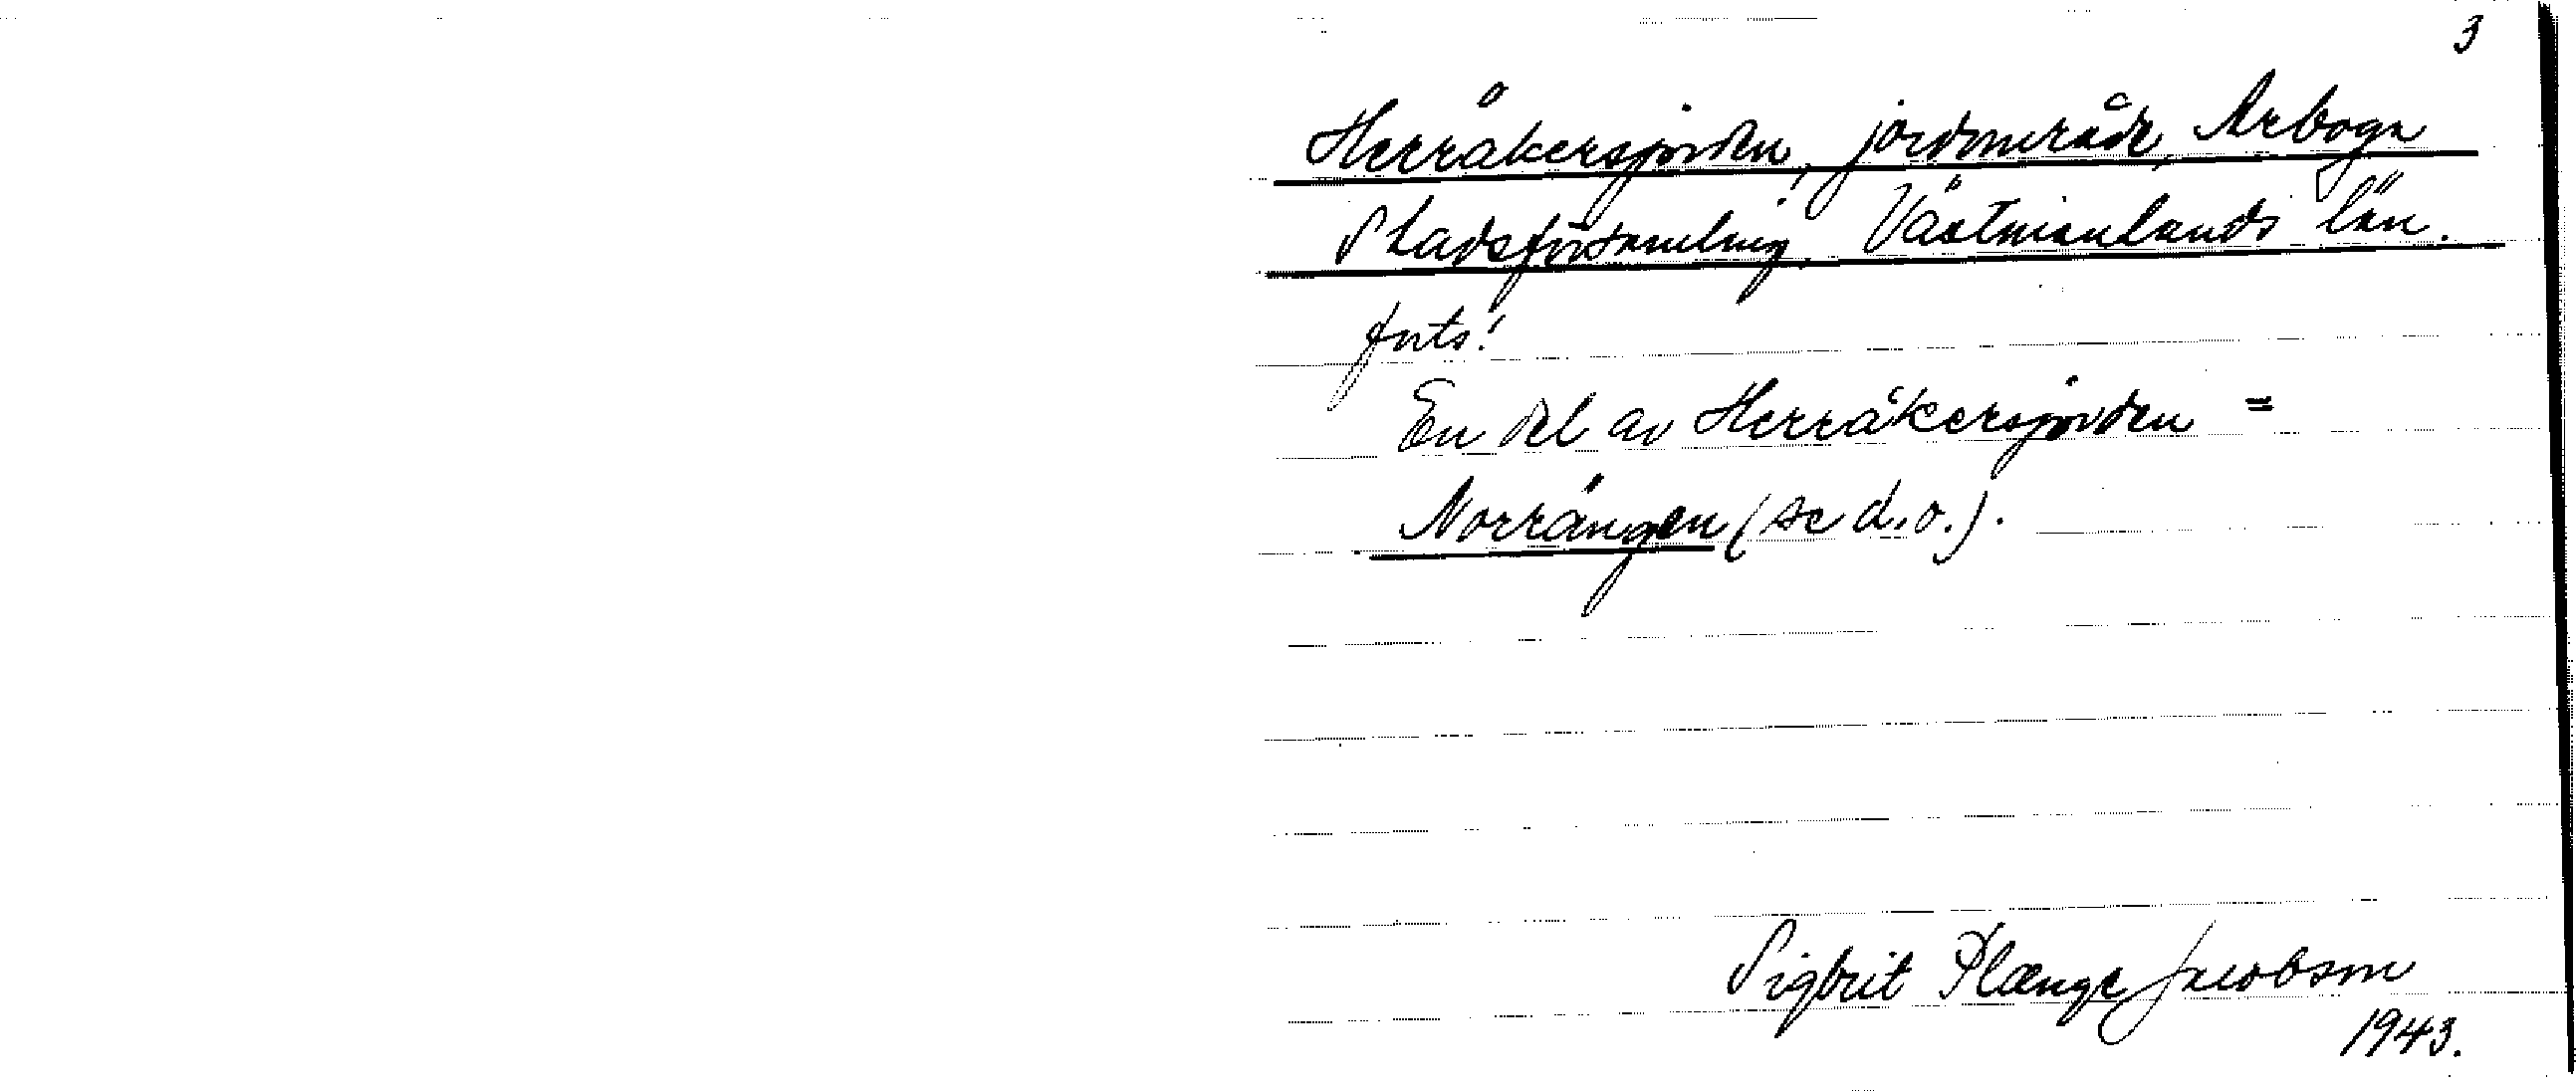 3
Herråkersjorden, jordområde, Arboga
Stadsförsamling, Västmanlands län.
forts!
En del av Herråkersjorden =
Norrängen (se d.o.).
Sigbrit Plænge Jacobson
1943.